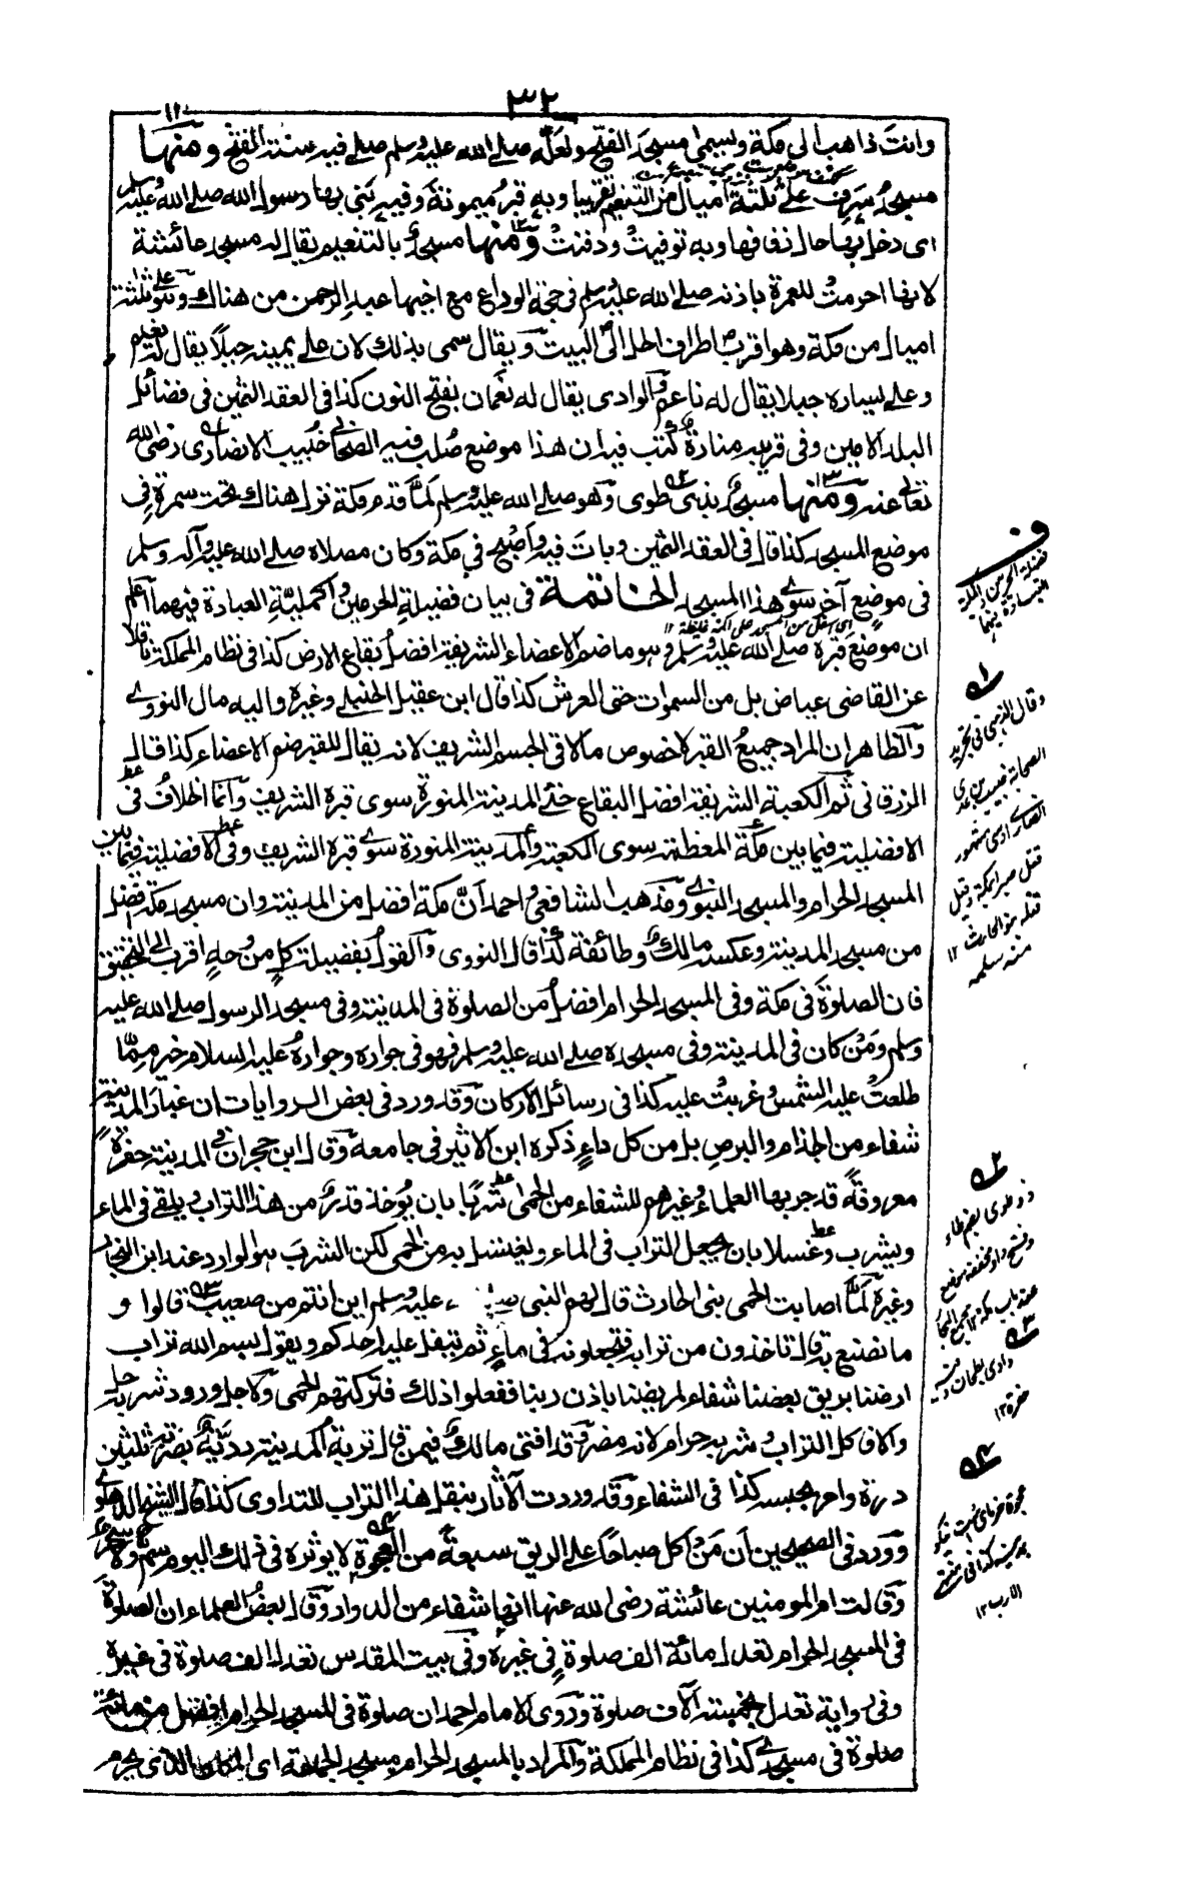 ٣٢
وانتَ ذاهب الى مكة ويسمى مسجدَ الفتح ولعلّه صلے الله عليه وسلم صلے فيه سنة الفتح ومنها ١١
مسجدُ سَرِف علےٰ ثلثة اميال من التنعيم تقريبا وبه قبرُ ميمونةَ وفيه بَنى بها رسول الله صلے الله عليه وسلم
اى دخل بها حال زفافها وبه توفيتْ ودفنتْ ومنها ١٢ مسجدٌ بالتنعيم يقال له مسجد عائشة
لانها احرمتْ للعمرة باذنه صلے الله عليه وسلم فى حجة الوداع مع اخيها عبدِ الرحمن من هناك وهو علے ثلثة
اميال من مكة وهو اقربُ اطراف الحل الى البيت ويقال سمى بذلك لان علے يمينه جبلاً يقال له نعيم
وعلے يساره جبلا يقال له ناعم والوادى يقال له نَعْمان بفتح النون كذا فى العقد الثمين فى فضائل
البلد الامين وفى قربه منارةٌ كُتب فيه ان هذا موضع صُلب فيه الصحابى خُبيب الانصارى رضى الله
تعالى عنه ومنها ١٣ مسجدٌ بذى طوى وهو صلے الله عليه وسلم لمّا قدم مكة نزل هناك تحت سمرة فى
موضع المسجد كذا قال فى العقد الثمين وبات فيه واصبح فى مكة وكان مصلاه صلے الله عليه وآله وسلم
فى موضع آخر سوے هذا المسجد الخاتمة فى بيان فضيلةِ الحرمين واكمليّةِ العبادة فيهما اعلم
اى اسفل من المسجد على اكمة غليظة ١٢
ان موضعَ قبرِه صلے الله عليه وسلم وهو ما ضم الاعضاء الشريفة افضلُ بقاع الارض كذا فى نظام المملكة ناقلا
عن القاضى عياض بل من السموات حتى العرش كذا قال ابن عقيل الحنبلے وغيره واليه مال النووے
والظاهر ان المراد جميعُ القبر لا خصوص ما لاقى الجسم الشريف لانه يقال للقبر ضم الاعضاء كذا قال
الزرقانى ثم الكعبة الشريفة افضل البقاع حتے المدينة المنورة سوى قبره الشريف وانما الخلافُ فى
الافضلية فيما بين مكّة المعظمة سوى الكعبة والمدينة المنورة سوے قبره الشريف وفى الافضلية فيما بين
المسجد الحرام والمسجد النبوى ومذهب الشافعى واحمد انّ مكة افضل من المدينة وان مسجد مكة افضل
من مسجد المدينة وعكسه مالك وطائفة كذا قال النووى والقول بفضيلة كلٍ من وجهٍ اقرب الى التحقيق
فان الصلوةَ فى مكة وفى المسجد الحرام افضلُ من الصلوة فى المدينة وفى مسجد الرسول صلے الله عليه
وسلم ومَن كان فى المدينة وفى مسجده صلے الله عليه وسلم فهو فى جواره وجوارهُ عليه السلام خير ممّا
طلعتْ عليه الشمس وغربتْ عليه كذا فى رسائل الاركان وقد ورد فى بعض الروايات ان غبارَ المدينة
شفاء من الجذام والبرص بل من كل داءٍ ذكره ابن الاثير فى جامعه وقال ابن حجر ان فى المدينة حفرةً
معروفةً قد جربها العلماء وغيرهم للشفاء من الحمى شربًا بان يُوخذ قدرٌ من هذا التراب ويلقے فى الماء
ويشرب وغسلا بان يجعل التراب فى الماء ويغتسل به من الحمى لكن الشربَ هو الوارد عند ابن النجار
وغيره لمّا اصابت الحمى بنى الحارث قال لهم النبى عليه وسلم اين انتم من صعيب قالوا و
ما نصنع به قال تاخذون من ترابه فتجعلونه فى ماءٍ ثم يتفل عليه احدكم ويقول بسم الله تراب
ارضنا بريق بعضنا شفاء لمريضنا باذن ربنا ففعلوا ذلك فتركتهم الحمى ولاجل ورود شربه حل
والا فاكل التراب وشربه حرام لانه مضر وقد افتى مالك فيمن قال تربة المدينة رديّةٌ بضربه ثلثين
درة وامر بحبسه كذا فى الشفاء وقد وردت الآثار بنقل هذا التراب للتداوى كذا قال الشيخ الدهلوے
وورد فى الصحيحين ان مَن اكل صباحًا على الريق سبعةً من العجوة لا يوثر فيه فى ذلك اليوم سمٌّ ولا سحرٌ
وقالت ام المومنين عائشة رضى الله عنها انها شفاء من الدوار وقال بعضُ العلماء ان الصلوةَ
فى المسجد الحرام تعدل مائة الف صلوةٍ فى غيره وفى بيت المقدس تعدل الف صلوة فى غيره
وفى رواية تعدل بخمسة آلاف صلوة وروى الامام احمد ان صلوة فى المسجد الحرام افضل من مائة
صلوة فى مسجدى كذا فى نظام المملكة والمراد بالمسجد الحرام مسجد الجماعة اى المكان الذى يحرم
ف
فضيلة الحرمين واكملية
العبادة فيهما
١
وقال الذهبى فى تجريد
الصحابة خبيب بن عدى
انصارى اوسى مشهور
قتل صبرا بمكة وقيل
قتله بنو الحارث ١٢
منه سلمه
٢
ذو طوى بضم طاء
وفتح واو مخففة موضع
عند باب مكة ١٢ مجمع البحار
٣
وادى بطحان
حفره ١٢
٤
الارب ١٢